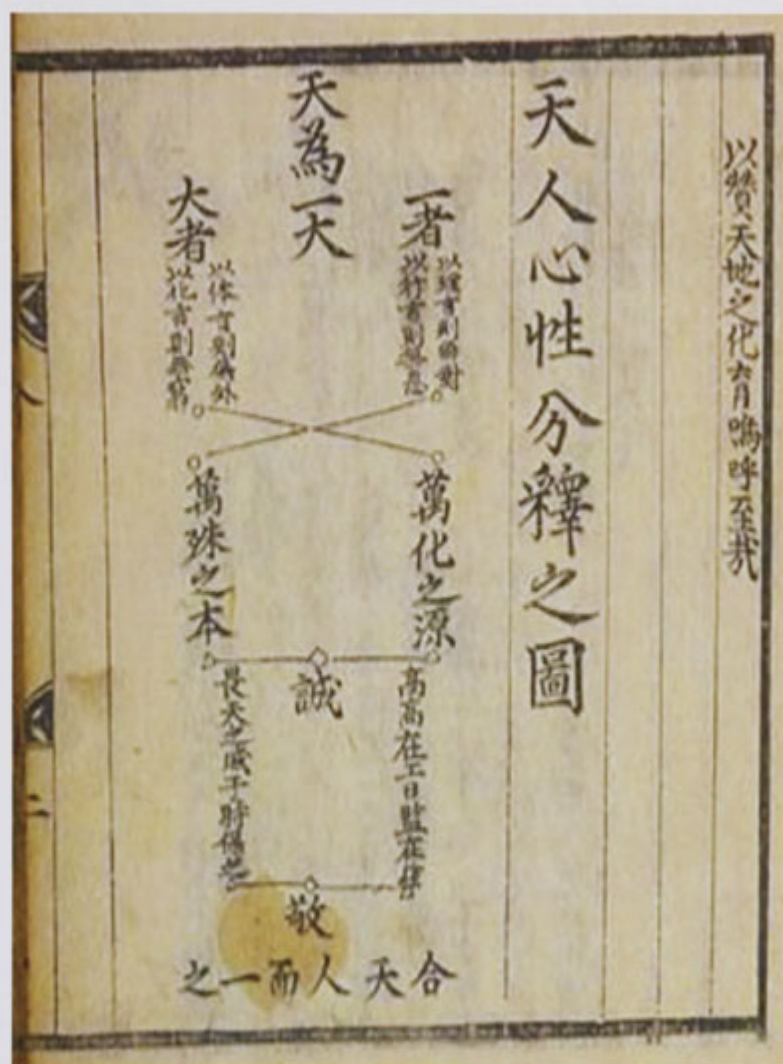 以贊天地之化育嗚呼至哉
天人心性分釋之圖
天為一大
一者
以理言則無對
以行言則無息
大者
以体言則無外
以化言則無窮
萬化之源
萬殊之本
誠
高高在上日監在茲
畏天之威于時保之
敬
合天人而一之
二